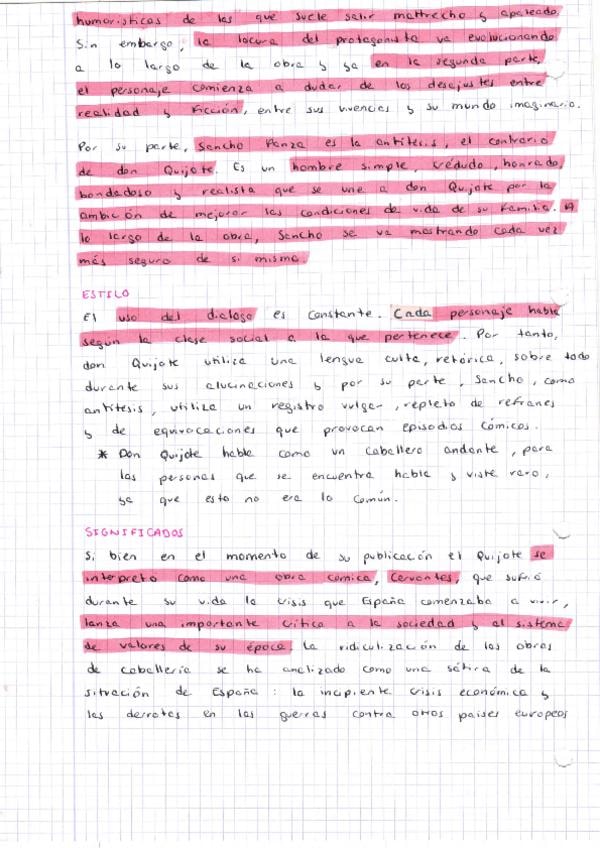 humorísticas de las que suele salir maltrecho y apaleado.
Sin embargo, la locura del protagonista va evolucionando
a lo largo de la obra y ya en la segunda parte,
el personaje comienza a dudar de los desajustes entre
realidad y ficción, entre sus vivencias y su mundo imaginario.
Por su parte, Sancho Panza es la antítesis, el contrario
de don Quijote. Es un hombre simple, crédulo, honrado,
bondadoso y realista que se une a don Quijote por la
ambición de mejorar las condiciones de vida de su familia. A
lo largo de la obra, Sancho se va mostrando cada vez
más seguro de si mismo.
ESTILO
El uso del dialogo es constante. Cada personaje habla
según la clase social a la que pertenece. Por tanto,
don Quijote utiliza una lengua culta, retórica, sobre todo
durante sus alucinaciones y por su parte, Sancho, como
antítesis, utiliza un registro vulgar, repleto de refranes
y de equivocaciones que provocan episodios cómicos.
* Don Quijote habla como un caballero andante, para
las personas que se encuentra habla y viste raro,
ya que esto no era lo común.
SIGNIFICADOS
Si bien en el momento de su publicación el Quijote se
interpretó como una obra cómica, Cervantes, que sufrió
durante su vida la crisis que España comenzaba a vivir,
lanza una importante crítica a la sociedad y al sistema
de valores de su época. La ridiculización de las obras
de caballería se ha analizado como una sátira de la
situación de España: la incipiente crisis económica y
las derrotas en las guerras contra otros países europeos